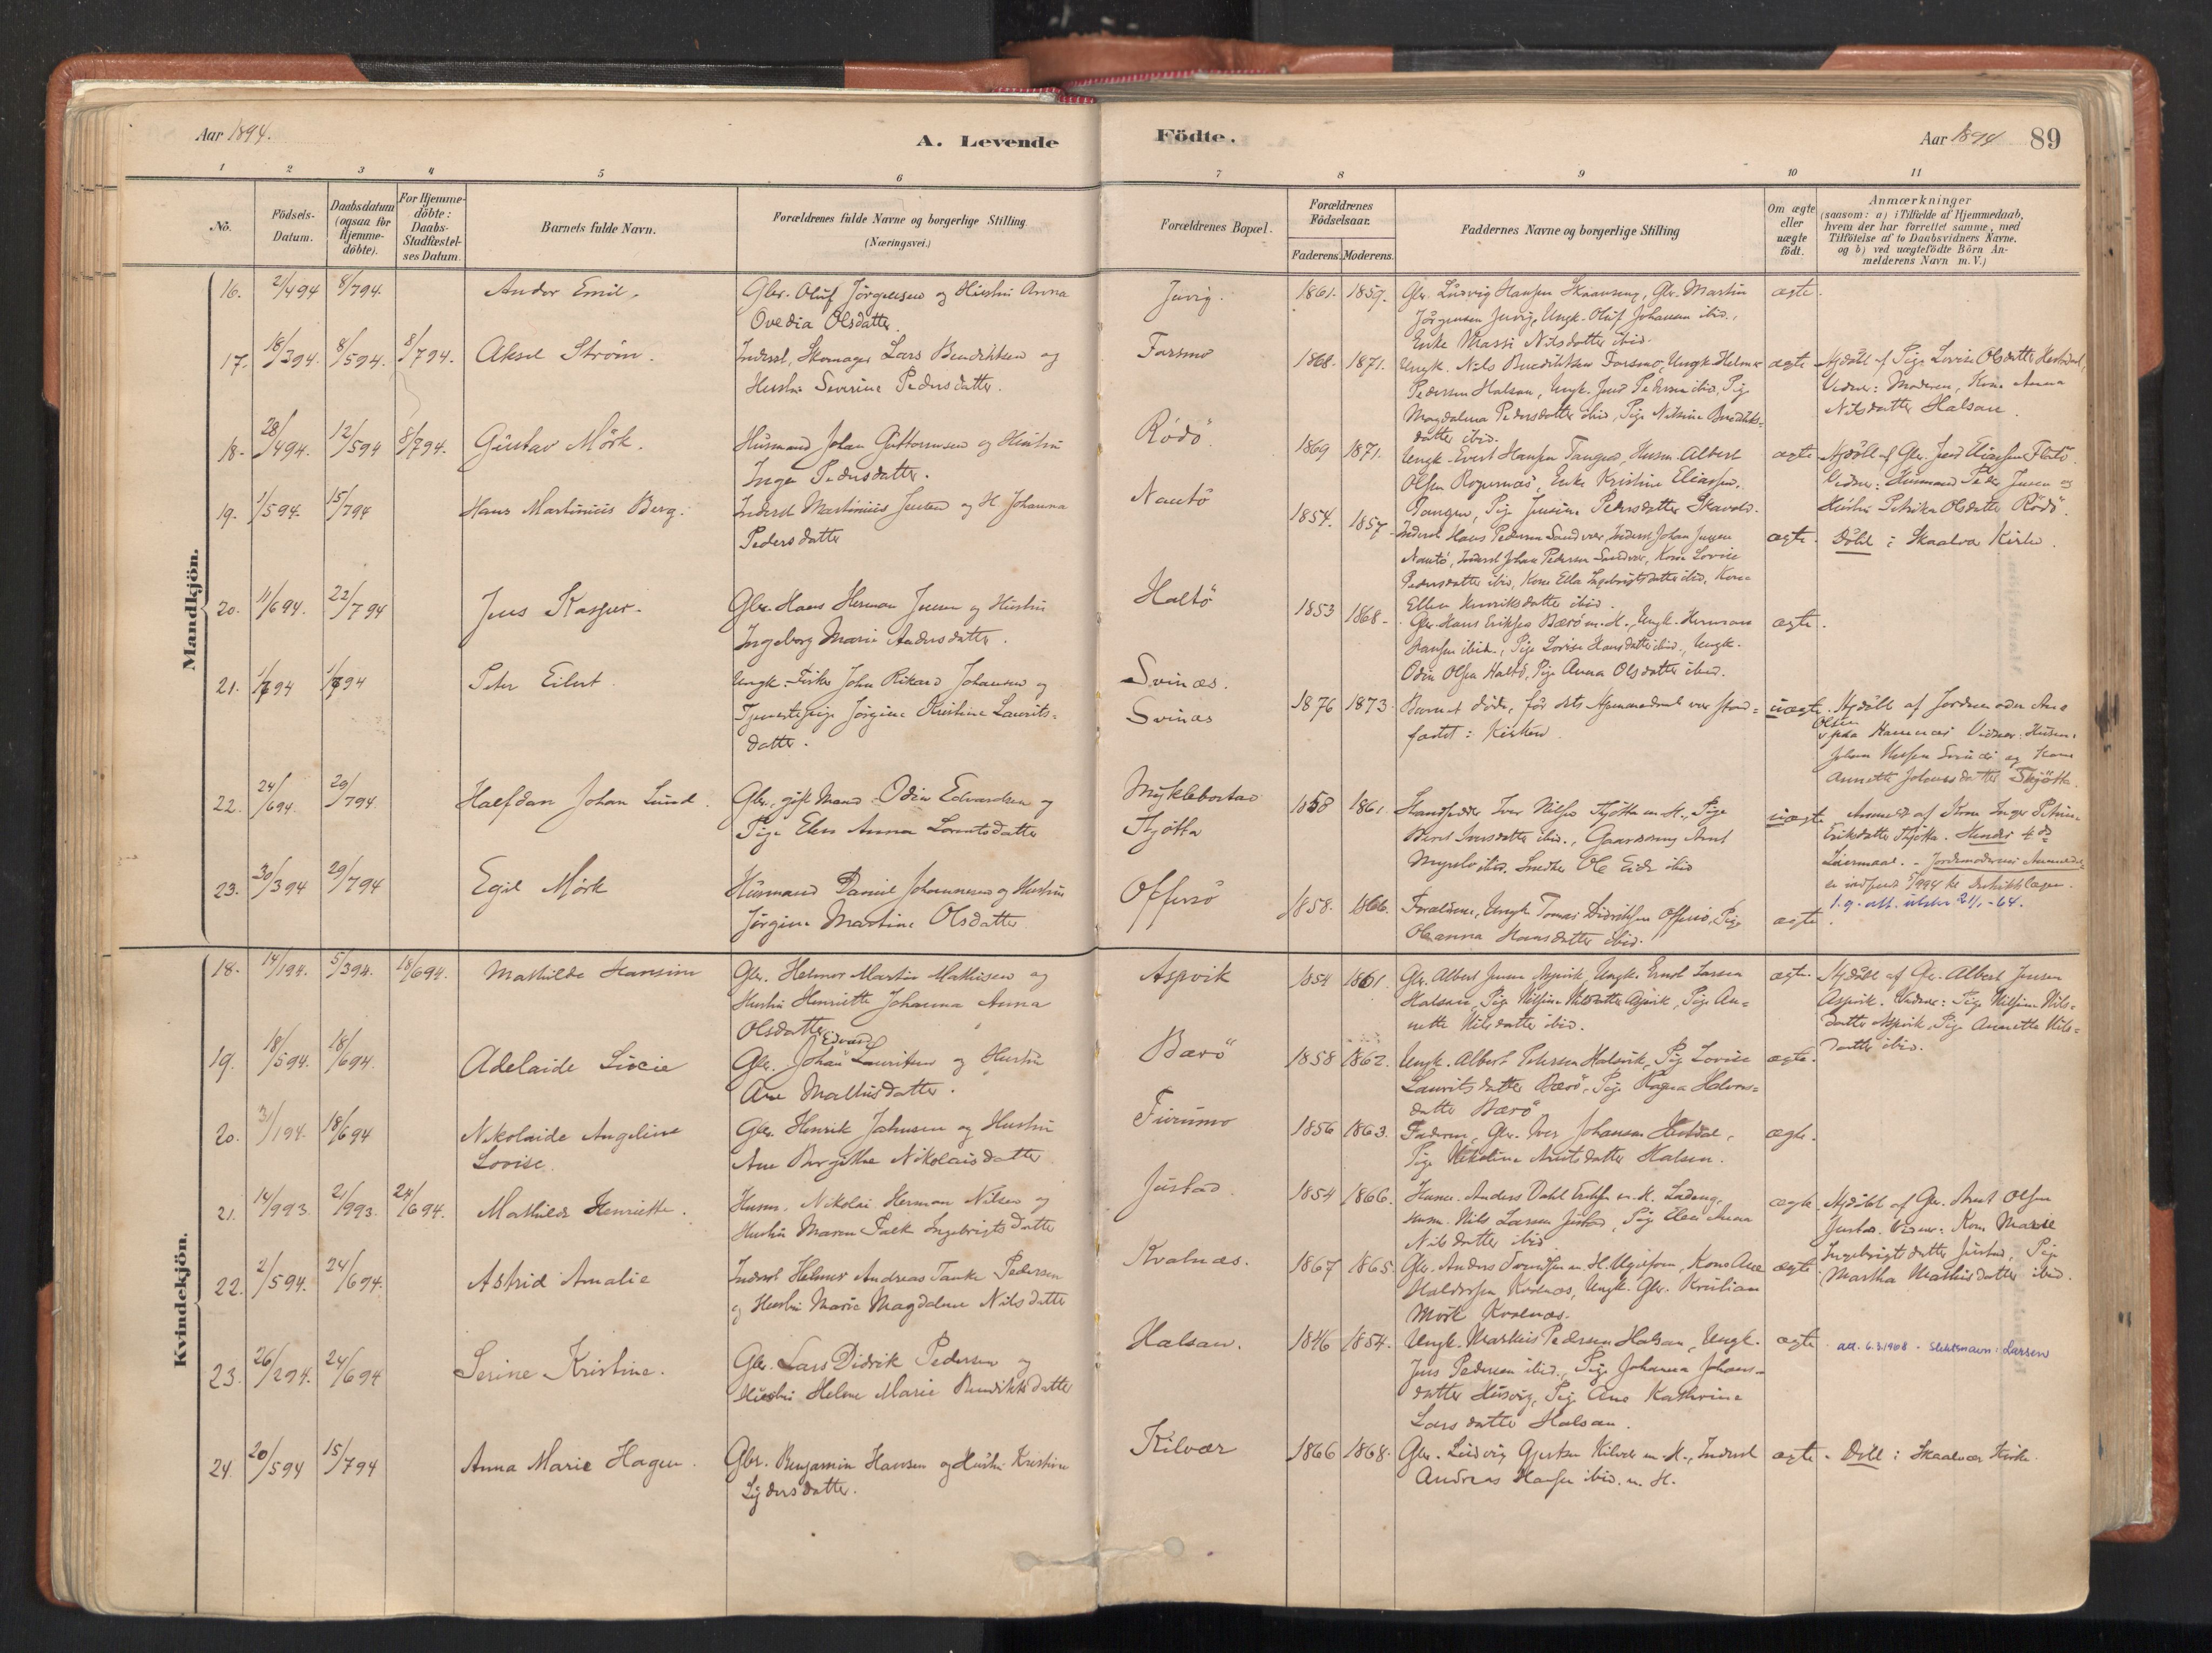 Aar 1894.
A. Levende
Födte.
Aar 1894
89
1 2 3 4 5 6 7 8 9 10 11
No.
Födsels-
Datum.
Daabsdatum
(ogsaa for
Hjemme-
döbte).
For Hjemme-
döbte:
Daabs-
Stadfæstel-
ses Datum.
Barnets fulde Navn.
Forældrenes fulde Navne og borgerlige Stilling
(Næringsvei.)
Forældrenes Bopæl.
Forældrenes
Födselsaar.
Faderens. Moderens.
Faddernes Navne og borgerlige Stilling
Om ægte
eller
uægte
födt.
Anmærkninger
(saasom: a) i Tilfælde af Hjemmedaab,
hvem der har forrettet samme, med
Tilföielse af to Daabsvidners Navne,
og b) ved uægtefödte Börn An-
melderens Navn m. V.)
Mandkjön.
16. 2/494 8/794. Andor Emil.
Gbr. Oluf Jörgensen og Hustru Anna
Ovedia Olsdatter.
Juvig. 1861. 1859.
Gbr. Ludvig Hansen, Gbr. Martin
Jörgensen Juvig, Ungk. Oluf Johansen ibid.,
Enke Massi Nilsdatter ibid.
ægte.
17. 18/394. 8/594. 8/794. Aksel Strøm.
Inderst, Skomager Lars Bendiktsen og
Hustru Severine Pedersdatter.
Forsmo 1868. 1871.
Ungk. Nils Bendiktsen Forsmo, Ungk. Helmer
Pedersen Halsan, Ungk. Jens Pedersen ibid, Pige
Magdalena Pedersdatter ibid, Pige Nilsine Bendikts-
datter ibid.
ægte
Hjdöbt af Pige Lovise Olsdatter
Vidner: Moderen, Kone Anna
Nilsdatter Halsan.
18. 28/494. 12/594 8/794. Gustav Mörk.
Husmand Johan Guttormsen og Hustru
Inga Pedersdatter.
Rödö. 1869 1871.
Ungk. Evert Hansen Tangen, Husm. Albert
Olsen, Enke Kristine Eliassen,
Tangen, Pige Jensine Pedersdatter
ægte
Hjdöbt af Gbr. Jens Eliassen Flatö.
Vidner: Husmand Peder Jensen og
Hustru Petrikka Olsdatter Rödö.
19. 1/594. 15/794 Hans Martinius Berg.
Inderst Martinius Jensen og H. Johanna
Pedersdatter
Nautö 1854. 1857
Inderst Hans Pedersen Sandvær, Inderst Johan Jensen
Nautö, Inderst Johan Pedersen Sandvær, Kone Lovise
Pedersdatter ibid, Kone Ella Ingebrigtsdatter ibid, Kone
Ellen Henriksdatter ibid.
ægte.
Döbt i Skaalvær Kirke.
20. 11/694. 22/794 Jens Kasper.
Gbr. Hans Herman Jensen og Hustru
Ingeborg Marie Andersdatter.
Haltö 1853 1868
Gbr. Hans Eriksen Bærö m. H., Ungk. Herman
Hansen ibid., Pige Lovise Hansdatter ibid., Ungk.
Odin Olsen Haltö, Pige Anna Olsdatter ibid.
ægte.
21. Peter Eilert.
Ungk. Fisker John Rikard Johansen og
Tjenestepige Jörgine Kristine Laurits-
datter.
Svinæs.
Svinæs
1876 1873.
Barnet døde, før dets Hjemmedaab var stad-
fæstet i Kirken
uægte.
Hjdöbt af Jordmoder Ane
Olsen
paa Hamnæs Vidner: Husm.
Annette Johansdatter Tjötta.
22. 24/694. 29/794. Halfdan Johan Lund.
Gbr., gift Mand Odin Edvardsen og
Pige Elen Anna Lorentsdatter
Myklebostad
Tjötta
1858 1861.
Iver Nilsen Tjötta m. H., Pige
Berit Iversdatter ibid., Gaardsdreng Arnt
ibid. Smeden Ole Eide ibid
uægte
Anmeldt af Kone Inger Petrine
Eriksdatter Tjötta. Hendes 4de
Leiermaal. - Jordmoderens Anmeldel-
23. 30/394 29/794 Egil Mörk
Husmand Daniel Johannesen og Hustru
Jörgine Martine Olsdatter
Offersö 1858. 1866.
Forældrene, Ungk. Tomas Didriksen Offersö, Pige
Oleanna Hansdatter ibid.
ægte.
Kvindekjön.
18. 14/194. 5/394. 18/694. Mathilde Hansine
Gbr. Helmer Martin Mathisen og
Hustru Henriette Johanna Anna
Olsdatter
Aspvik 1854 1861.
Gbr. Albert Jensen Aspvik, Ungk. Ernst Larsen
Halsan, Pige Nilsine Nilsdatter Aspvik, Pige An-
nette Nilsdatter ibid.
ægte.
Hjdöbt af Gbr. Albert Jensen
Aspvik. Vidner: Pige Nilsine Nils-
datter Aspvik, Pige Annette Nils-
datter ibid.
19. 18/594. 18/694. Adelaide Lucie
Edvard
Gbr. Johan Lauritsen og Hustru
Ane Mathisdatter.
Bærö 1858 1862.
Ungk. Albert Petersen Halsvik, Pige Lovise
Lauritsdatter Bærö, Pige Ragna Helmers-
datter Bærö
ægte.
20. 31/194. 18/694 Nikolaide Angeline
Lovise.
Gbr. Henrik Johnsen og Hustru
Ane Bergitha Nikolaisdatter
Furumo 1856 1863.
Faderen, Gbr. Iver Johansen Hestdal,
Pige Nikoline Arntsdatter Halsen.
ægte.
21. 14/993. 21/993. 24/694. Mathilde Henriette.
Husm. Nikolai Herman Nilsen og
Hustru Maren Falk Ingebrigtsdatter
Justad. 1854 1866.
Husm. Anders Dahl Eriksen m. H. Ladeng,
Husm. Nils Larsen Justad, Pige Elen Anna
Nilsdatter ibid
ægte
Hjdöbt af Gbr. Arnt Olsen
Justad. Vidner: Kone Marie
Ingebrigtsdatter Justad, Pige
Martha Mathisdatter ibid.
22. 2/594. 24/694. Astrid Amalie
Inderst Helmer Andreas Tanke Pedersen
og Hustru Marie Magdalene Nilsdatter
Kvalnæs. 1867 1865
Gbr. Anders m. H., Kone Ane
Haldorsen Kvalnæs, Ungk. Gbr. Kristian
Mörk Kvalnæs.
ægte
23. 26/294. 24/694 Serine Kristine.
Gbr. Lars Didrik Pedersen og
Hustru Helene Marie Bendiktsdatter
Halsan. 1846 1854.
Ungk. Markus Pedersen Halsan, Ungk.
Jens Pedersen ibid., Pige Johanna Johans-
datter Husvig, Pige Ane Kathrine
Larsdatter Halsan.
ægte
att. 6.3.1908 - Slektsnavn: Larsen
24. 20/594 15/794 Anna Marie Hagen.
Gbr. Benjamin Hansen og Hustru Kristine
Lydersdatter.
Kilvær 1866 1868.
Gbr. Ludvig Gjertsen Kilvær m. H., Inderst
Andreas Hansen ibid. m. H.
ægte.
Döbt i Skaalvær Kirke.